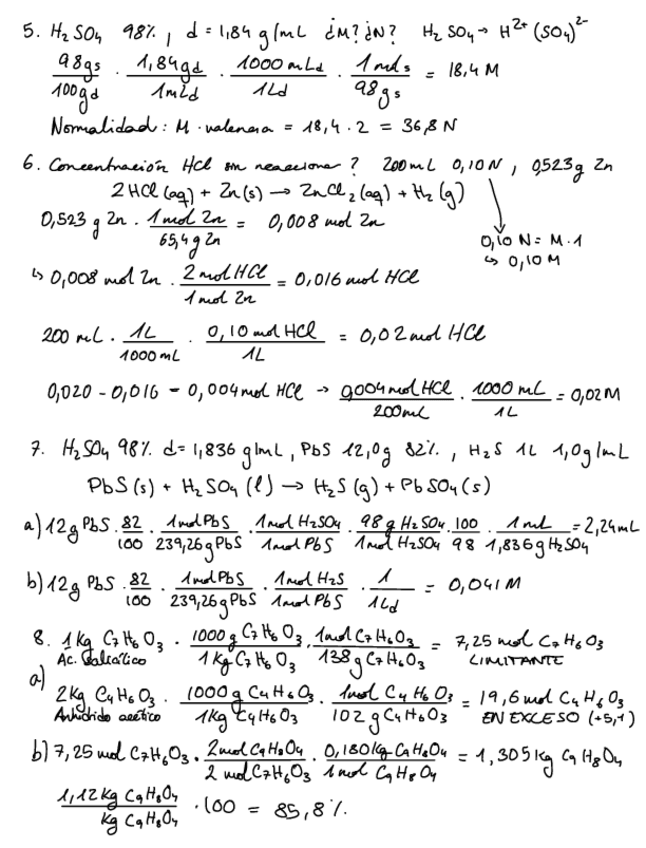 5. H₂SO₄ 98%, d = 1,84 g/mL ¿M? ¿N? H₂SO₄ → H²⁺ (SO₄)²⁻
98gs/100gd · 1,84gd/1mLd · 1000mLd/1Ld · 1mols/98gs = 18,4 M
Normalidad: M · valencia = 18,4 · 2 = 36,8 N
6. Concentración HCl sin reaccionar? 200mL 0,10N, 0,523g Zn
2HCl(aq) + Zn(s) → ZnCl₂(aq) + H₂(g)
0,523 g Zn · 1mol Zn/65,4g Zn = 0,008 mol Zn
0,10 N = M · 1
↳ 0,10 M
↳ 0,008 mol Zn · 2molHCl/1mol Zn = 0,016 mol HCl
200 mL · 1L/1000mL · 0,10molHCl/1L = 0,02mol HCl
0,020 - 0,016 - 0,004mol HCl → 0,004molHCl/200mL · 1000mL/1L = 0,02M
7. H₂SO₄ 98% d=1,836 g/mL, PbS 12,0g 82%, H₂S 1L 1,0g/mL
PbS(s) + H₂SO₄(l) → H₂S(g) + PbSO₄(s)
a) 12g PbS · 82/100 · 1molPbS/239,26gPbS · 1molH₂SO₄/1molPbS · 98gH₂SO₄/1molH₂SO₄ · 100/98 · 1mL/1,836gH₂SO₄ = 2,24mL
b) 12g PbS · 82/100 · 1molPbS/239,26gPbS · 1molH₂S/1molPbS · 1/1Ld = 0,041M
8. 1Kg C₇H₆O₃ · 1000g C₇H₆O₃/1Kg C₇H₆O₃ · 1mol C₇H₆O₃/138g C₇H₆O₃ = 7,25 mol C₇H₆O₃
Ac. LIMITANTE
a)
2Kg C₄H₆O₃ · 1000g C₄H₆O₃/1Kg C₄H₆O₃ · 1mol C₄H₆O₃/102g C₄H₆O₃ = 19,6mol C₄H₆O₃
Anhídrido acético EN EXCESO (+5,1)
b) 7,25mol C₇H₆O₃ · 2mol C₉H₈O₄/2mol C₇H₆O₃ · 0,180kg C₉H₈O₄/1mol C₉H₈O₄ = 1,305kg C₉H₈O₄
1,12kg C₉H₈O₄/kg C₉H₈O₄ · 100 = 85,8%.